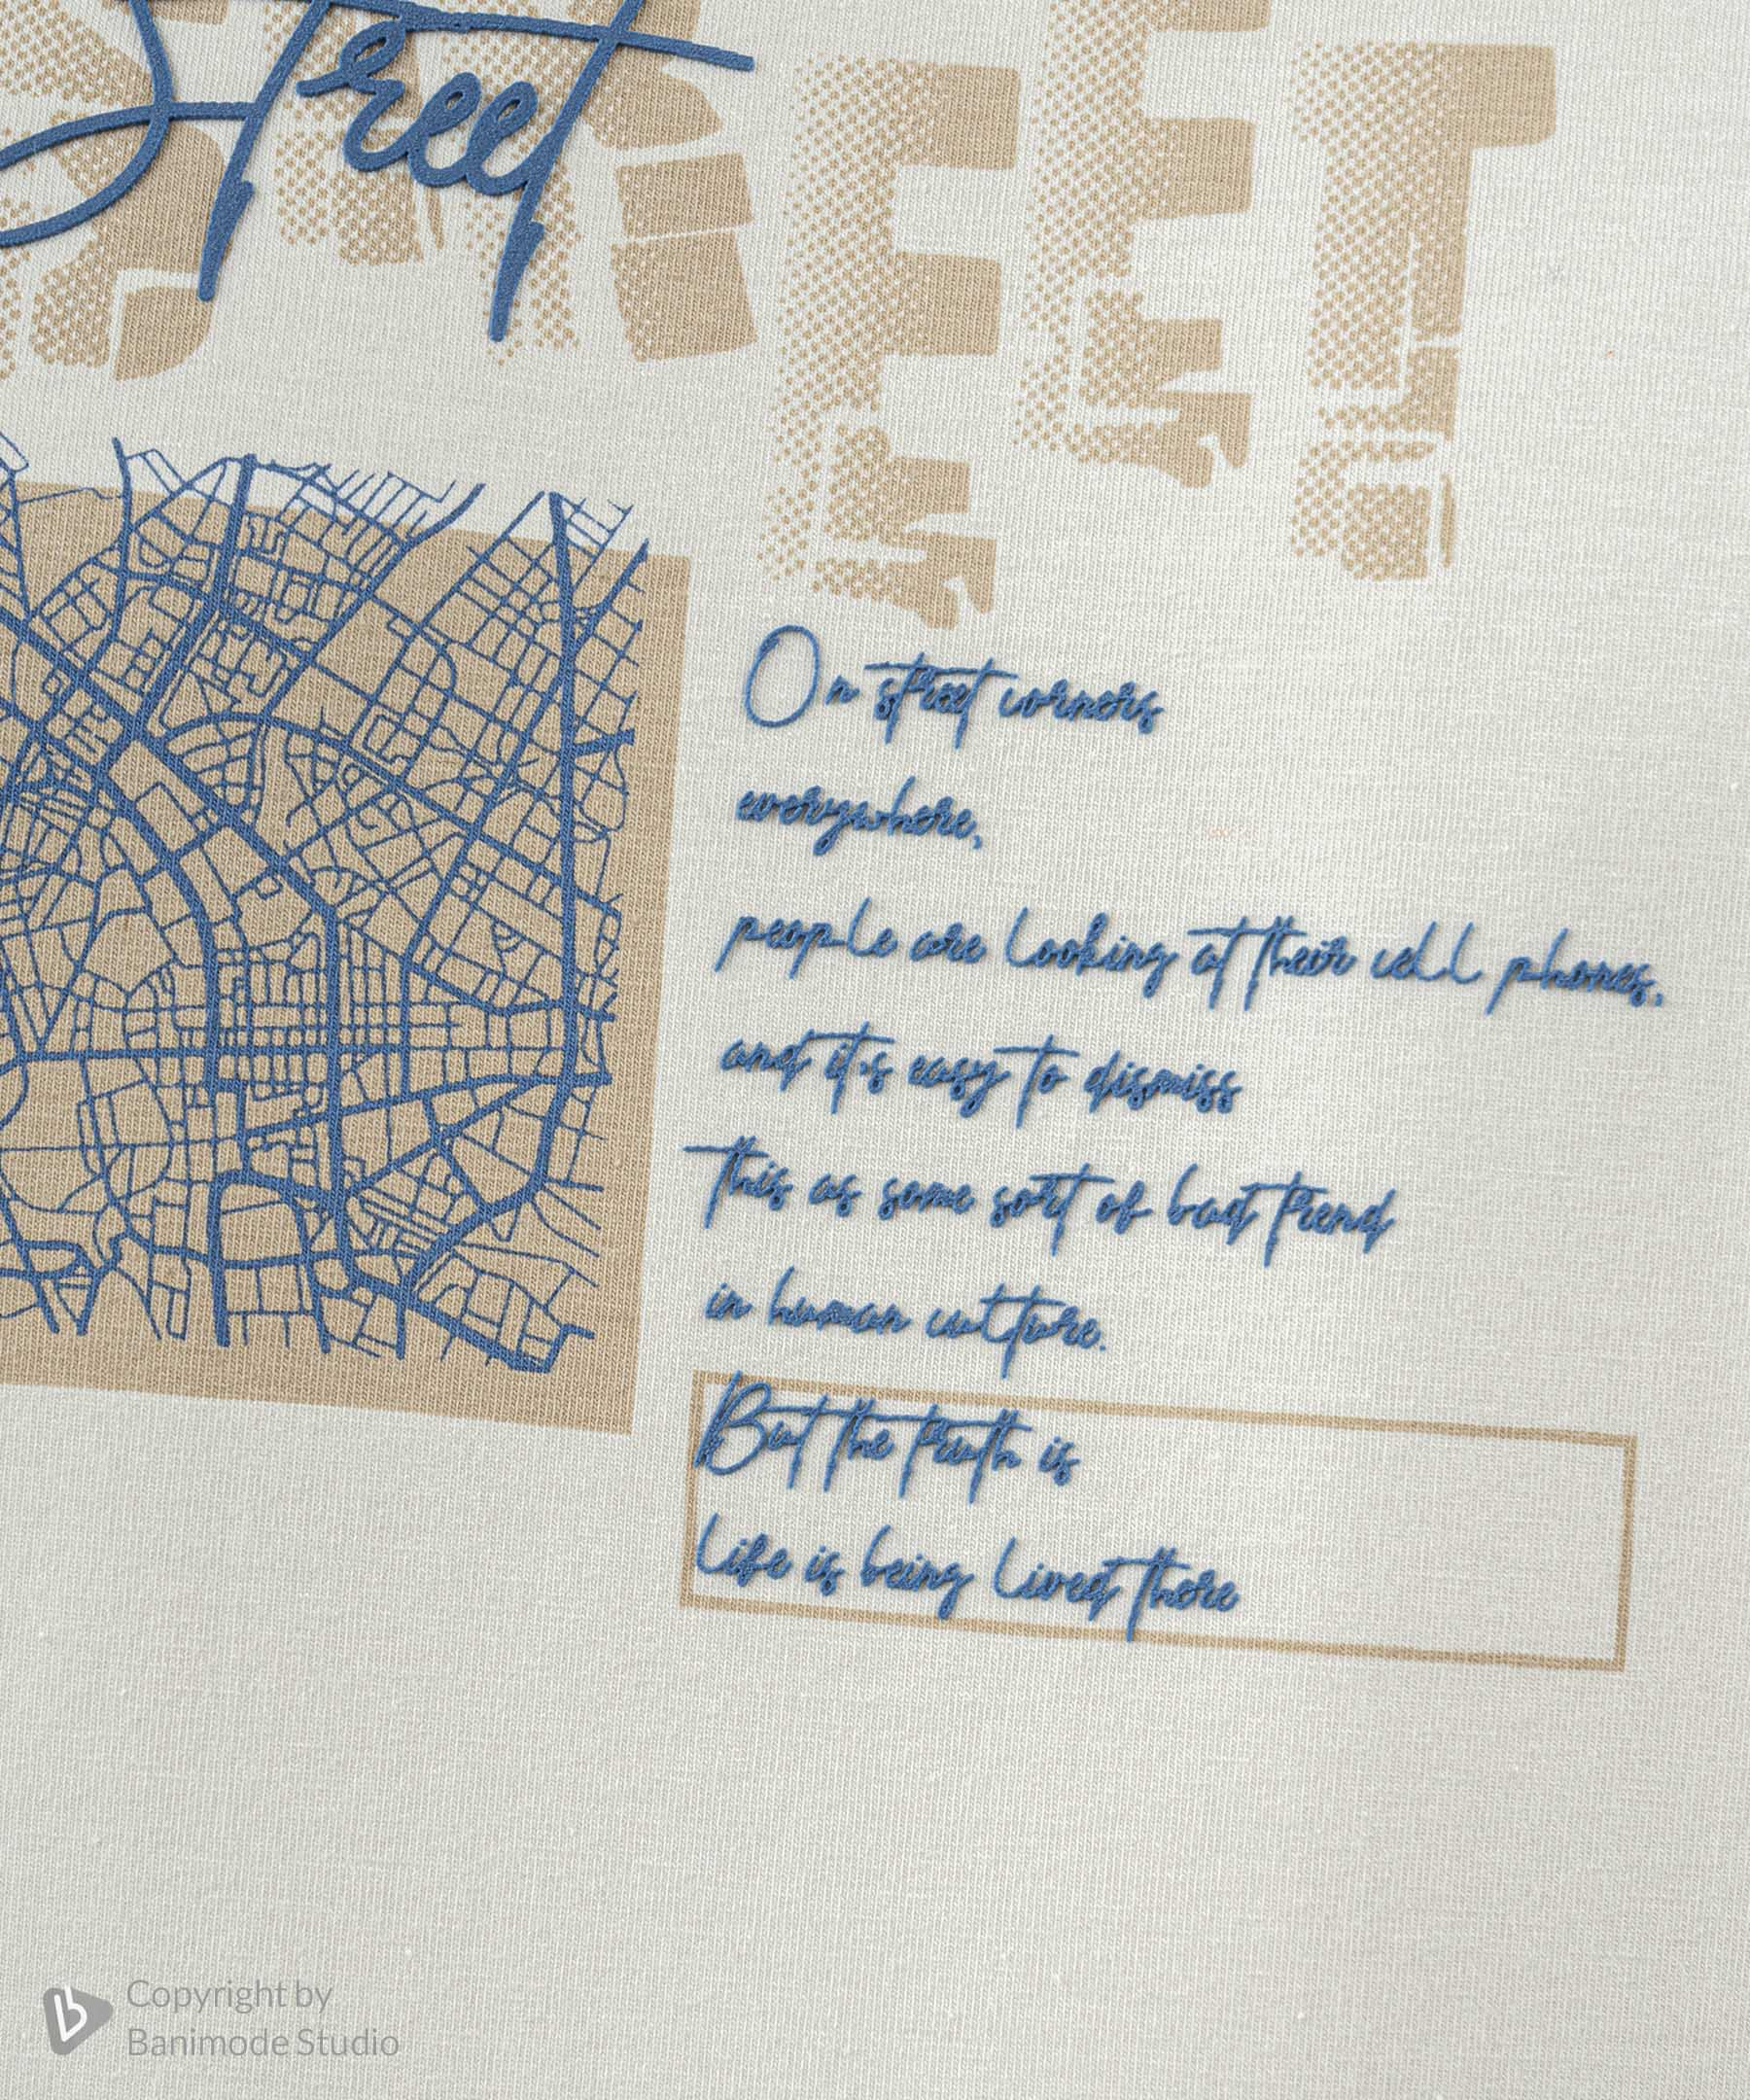 Street
STREET
On street corners
everywhere,
people are looking at their cell phones,
and it,s easy to dismiss
This as some sort of bad trend
in human culture.
But the truth is
Life is being lived there
Copyright by
Banimode Studio